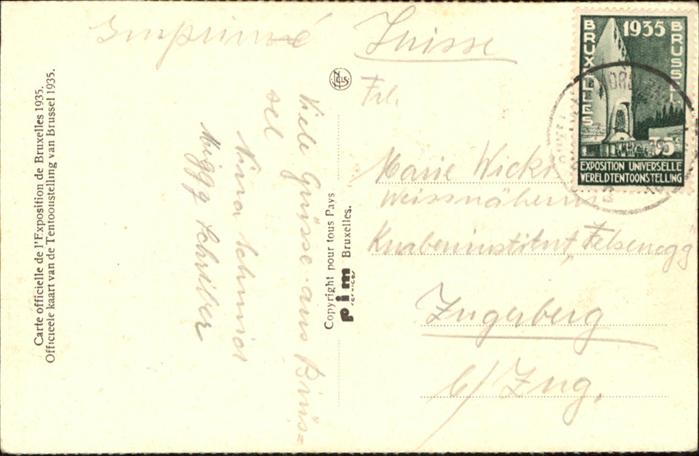 Imprimé
Suisse
BRUXELLES 1935 BRUSSEL
35
EXPOSITION UNIVERSELLE
WERELDTENTOONSTELLING
Frl.
Marie
Weissnäherin
Knabeninstitut „Felsenegg"
Zugerberg
b/ Zug.
Viele Grüsse aus Brüs=
sel
Nina Schmid
Meggy Schriber
Carte officielle de l'Exposition de Bruxelles 1935.
Officieele kaart van de Tentoonstelling van Brussel 1935.
Copyright pour tous Pays
pim Bruxelles.